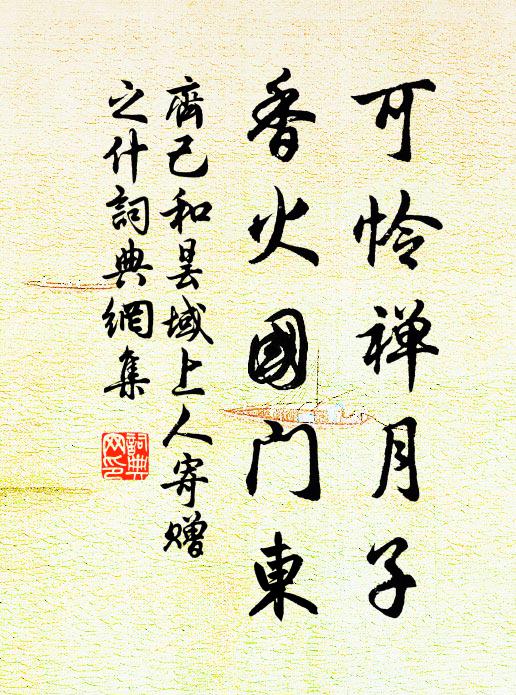 可怜禅月子
香火國门東
齊己和昙域上人寄赠
之什詞典網集
詞典
网印